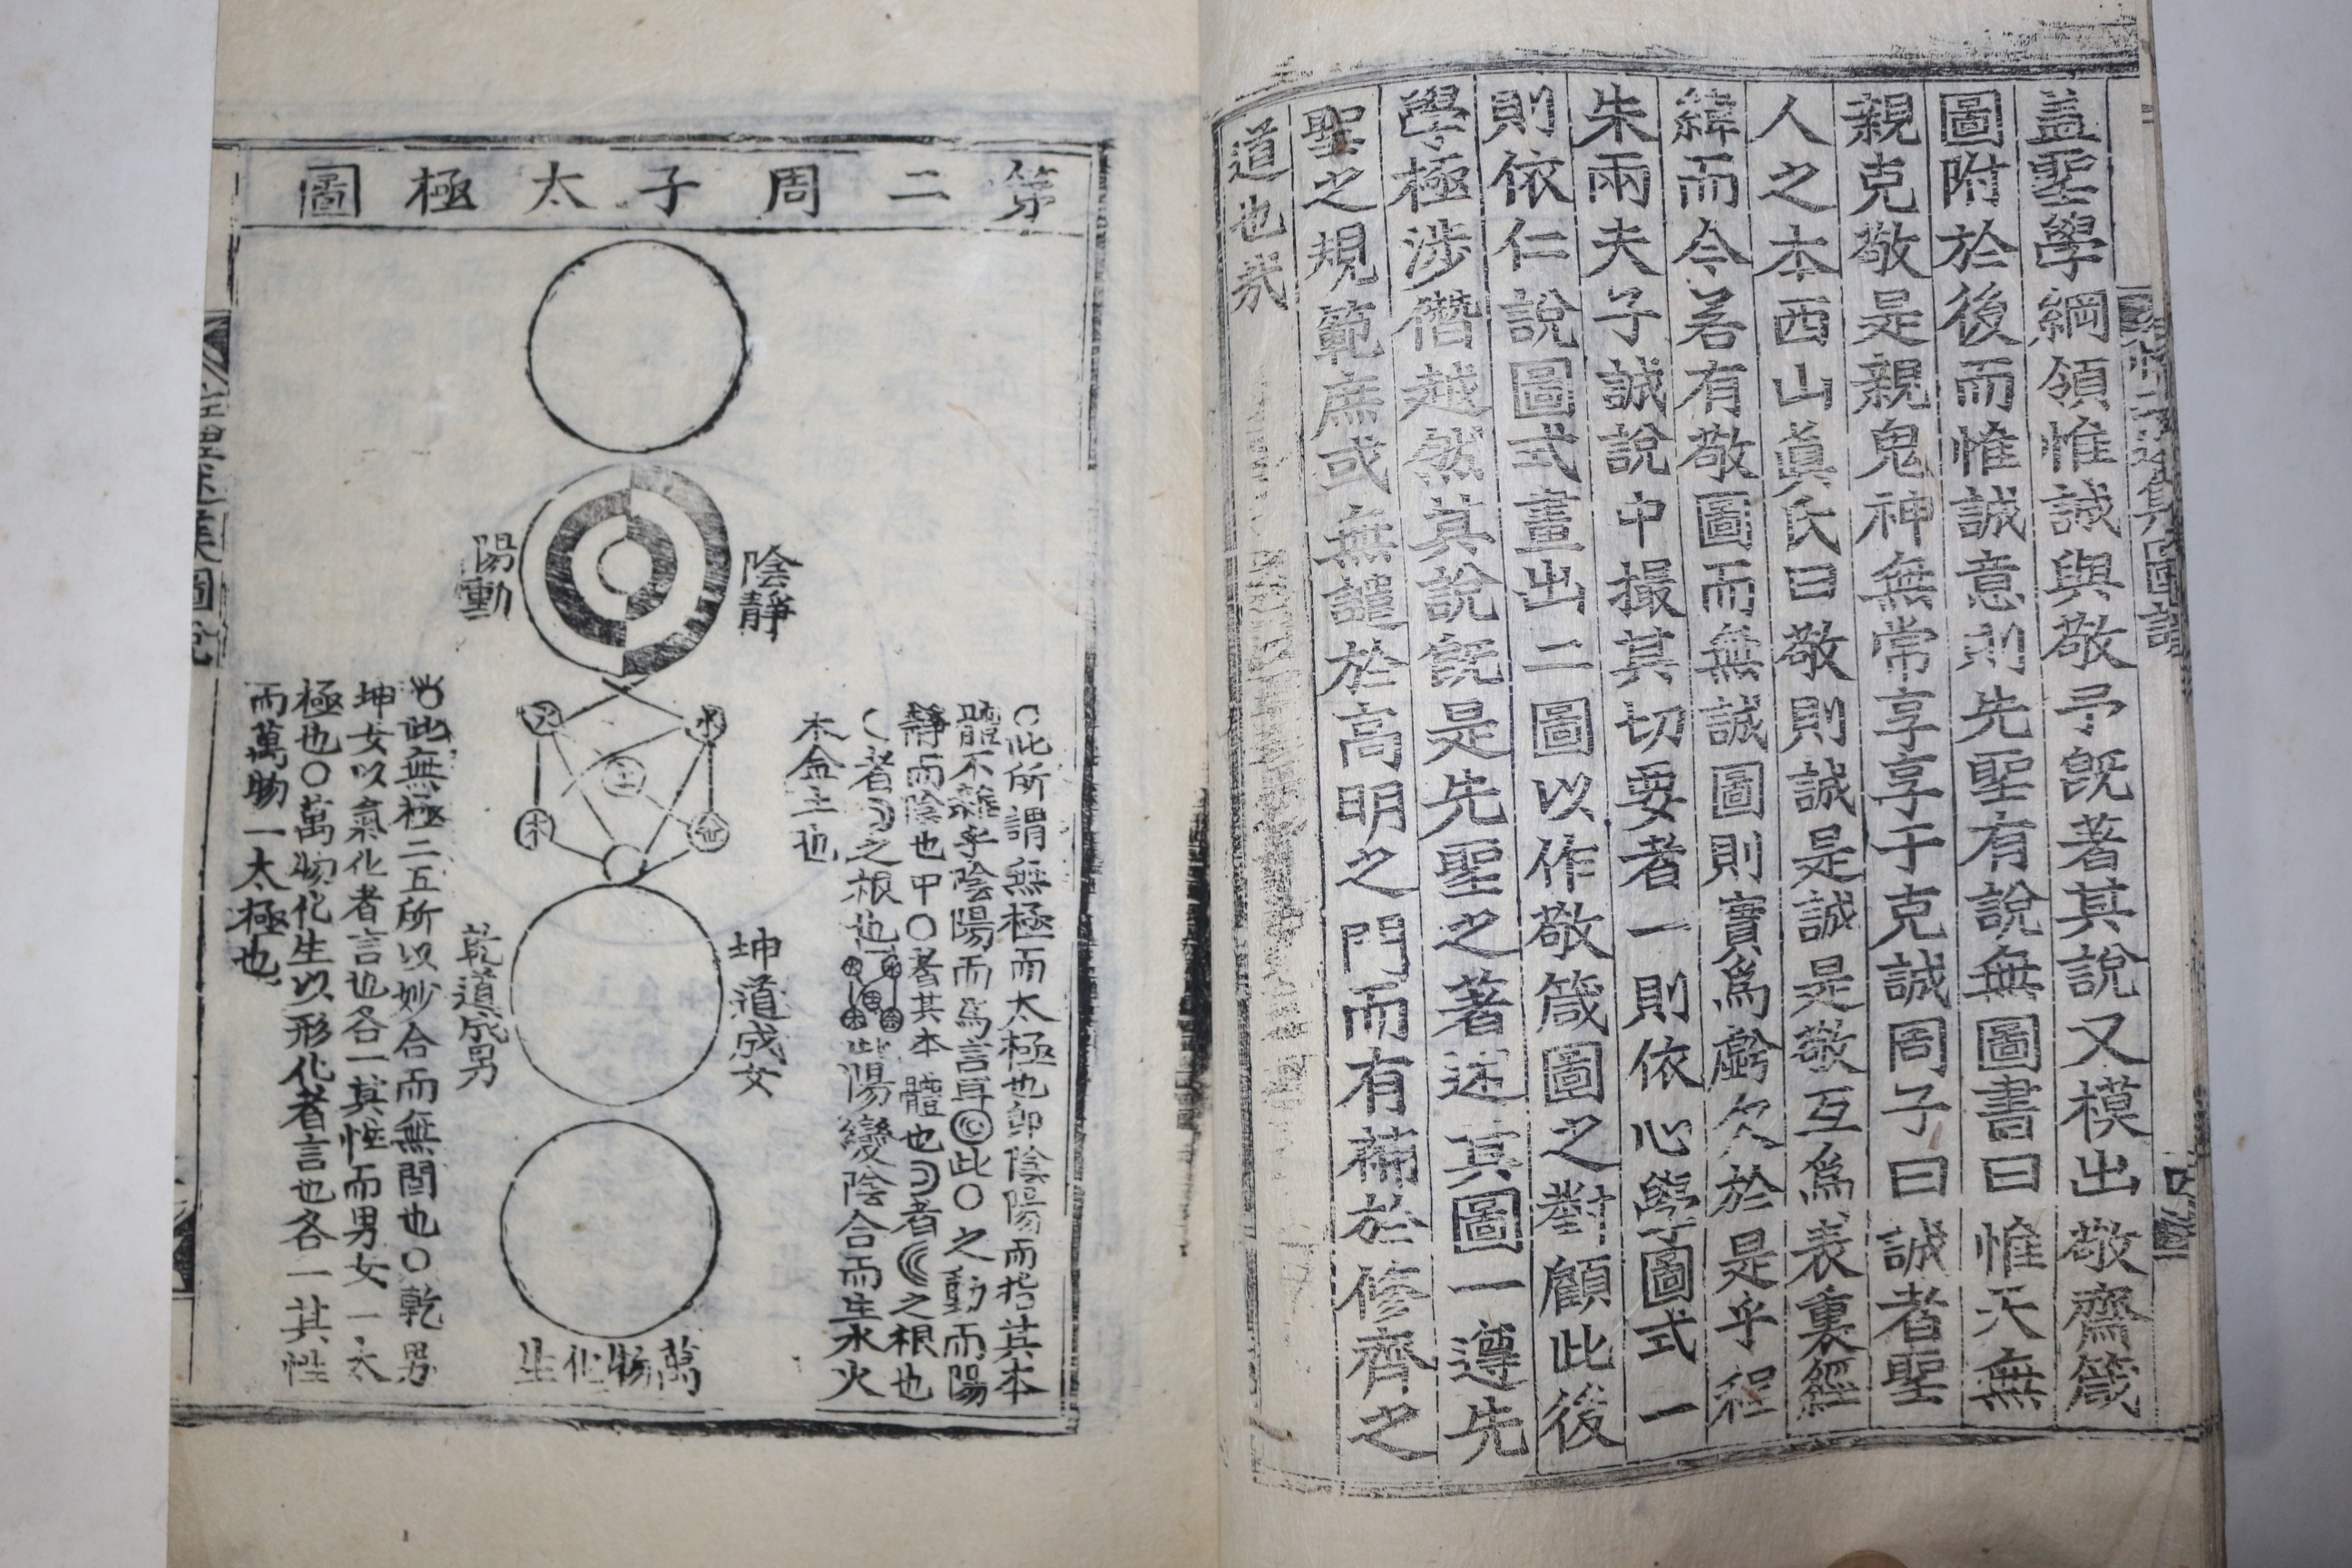 蓋聖學綱領惟誠與敬予旣著其說又模出敬齋箴
圖附於後而惟誠意則先聖有說無圖書曰惟天無
親克敬是親鬼神無常享享于克誠周子曰誠者聖
人之本西山眞氏曰敬則誠是誠是敬互爲表裏經
緯而今若有敬圖而無誠圖則實爲虧欠於是乎程
朱兩夫子誠說中撮其切要者一則依心學圖式一
則依仁說圖式畫出二圖以作敬箴圖之對顧此後
學極涉僭越然其說旣是先聖之著述其圖一遵先
聖之規範庶或無謹於高明之門而有補於修齊之
道也哉
第二周子太極圖
陰靜
陽動
火
水
土
木
金
坤道成女
乾道成男
萬物化生
○此所謂無極而太極也卽陰陽而指其本
體不雜乎陰陽而爲言耳此○之動而陽
靜而陰也中○者其本體也者之根也
者之根也此陽變陰合而生水火
木金土也
此無極二五所以妙合而無間也○乾男
坤女以氣化者言也各一其性而男女一太
極也○萬物化生以形化者言也各一其性
而萬物一太極也
性理
圖說